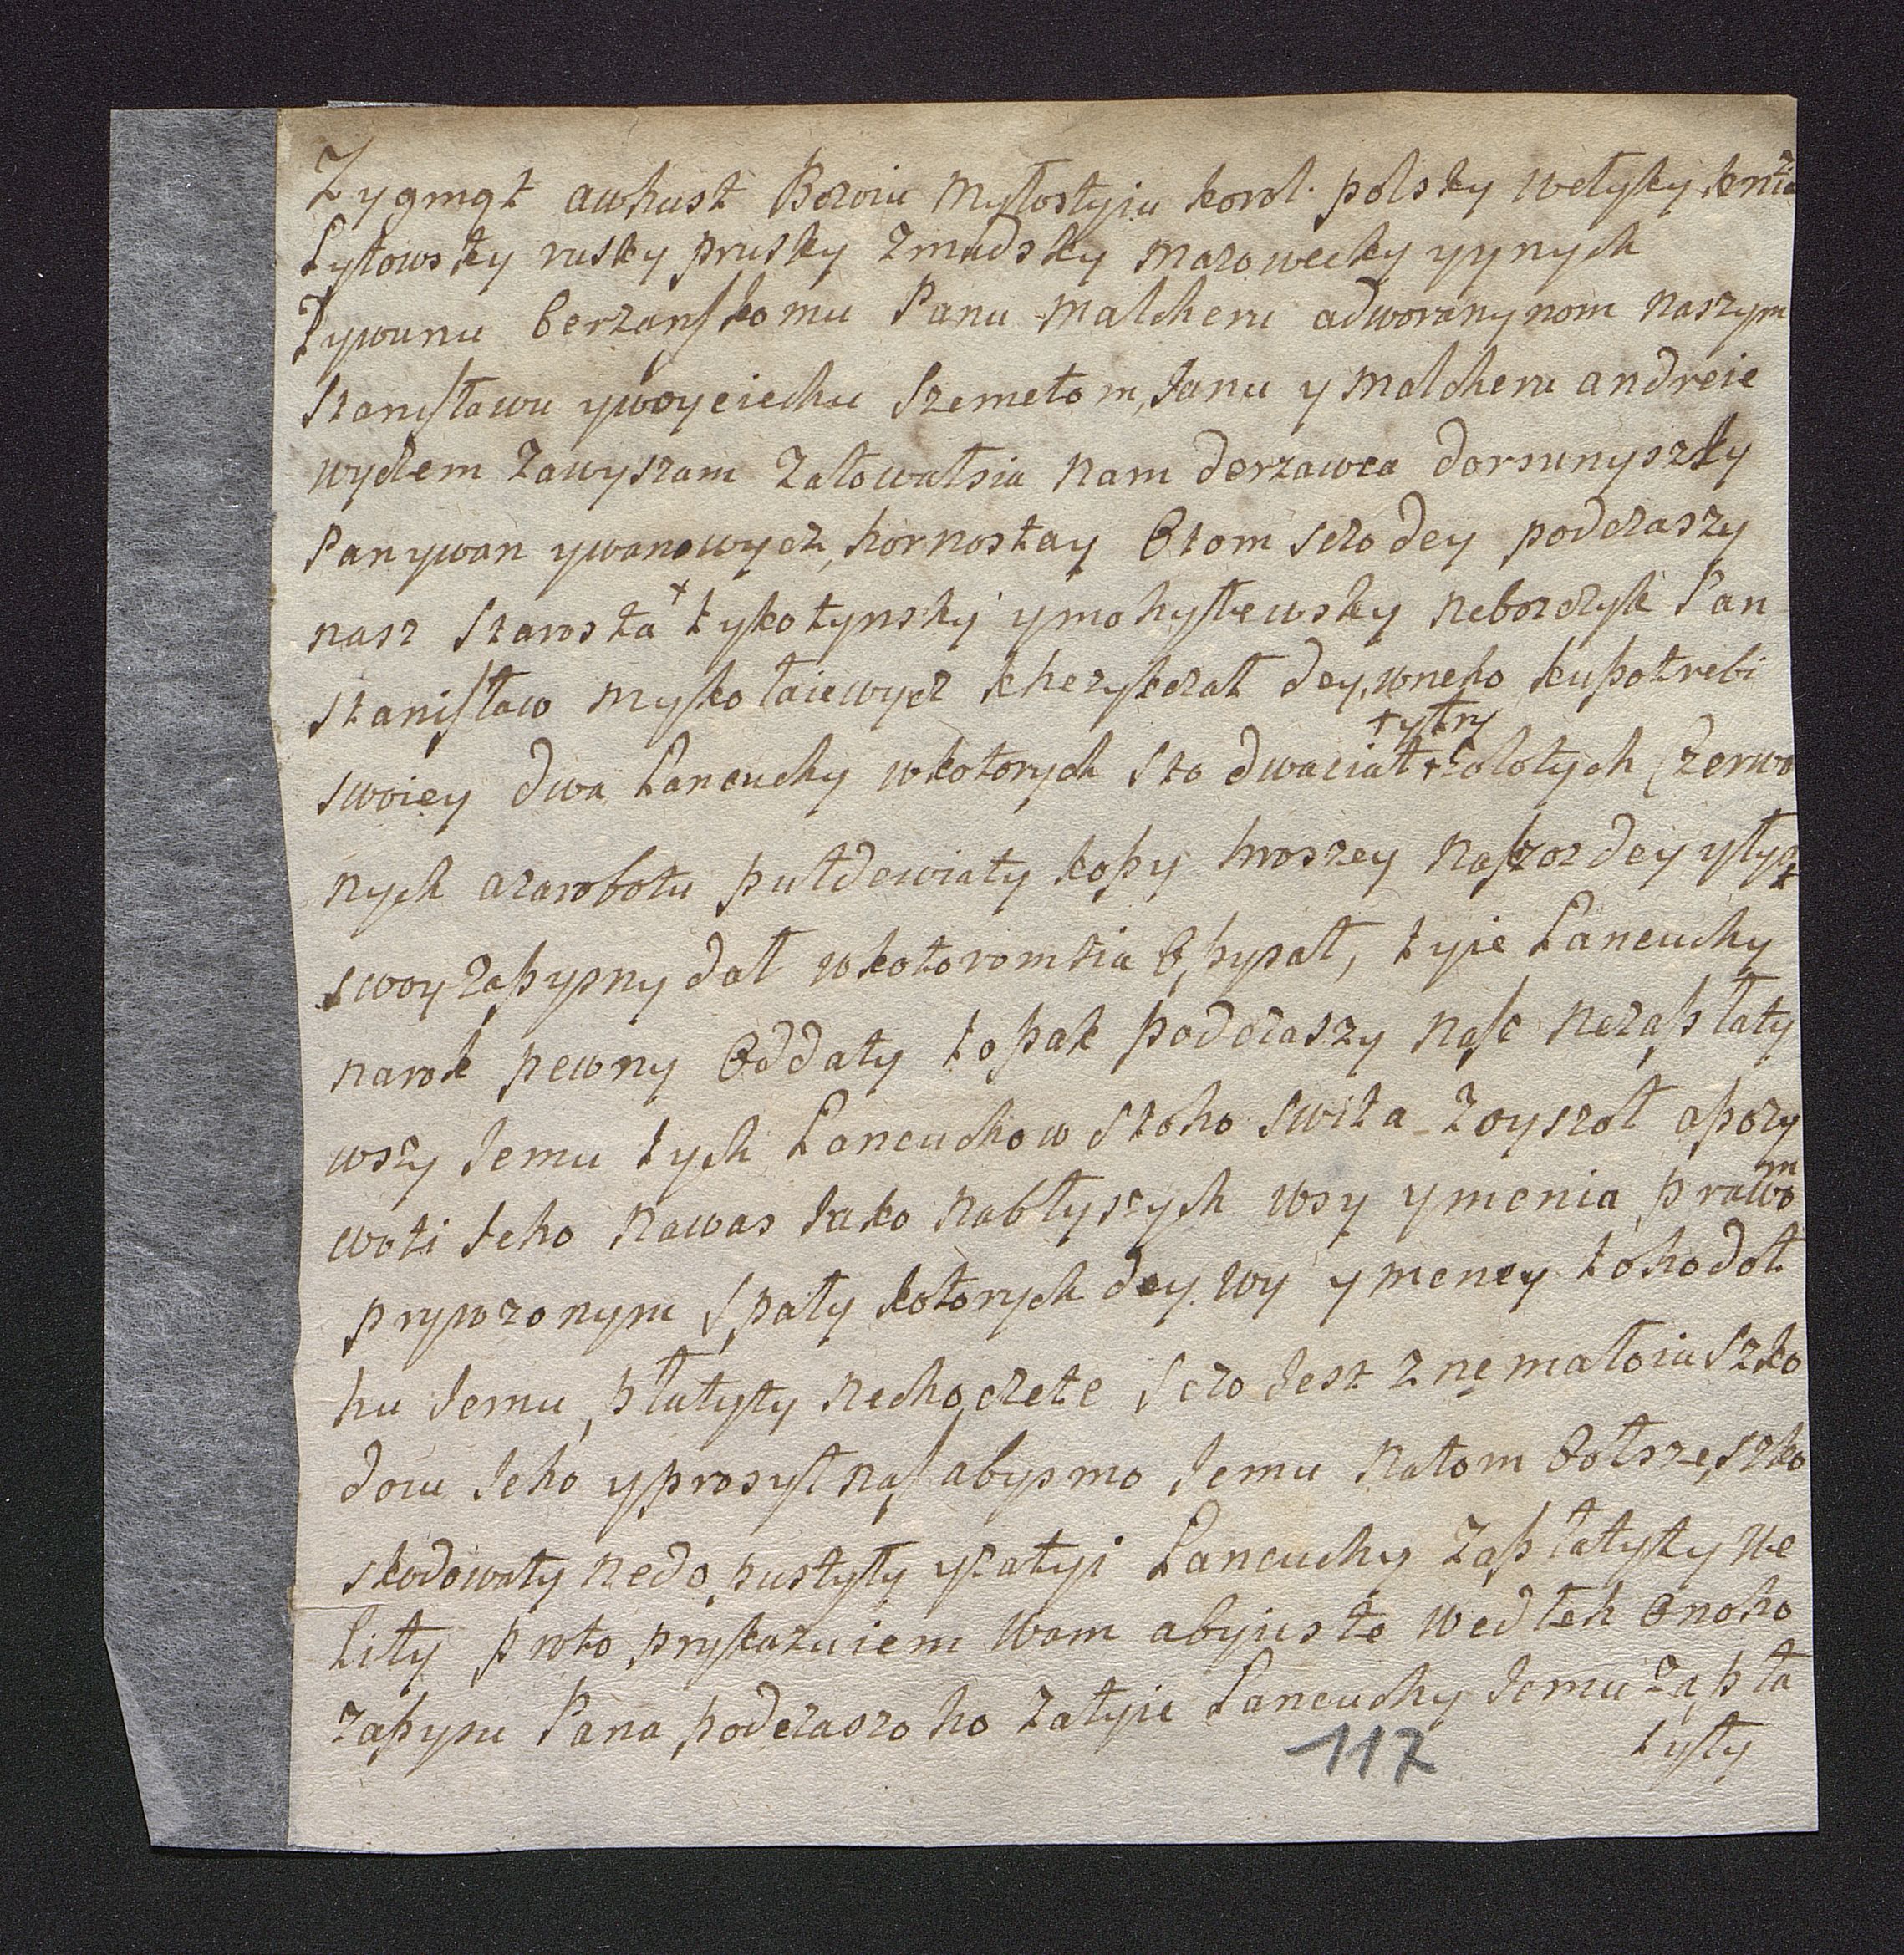 Zygmqt awhust Bozoiu mytostyiu korol. polsky wetyky kniz
Lytowsky rusky prusky zmudsky mazowecky yynych
Tywunu berzanskomu Panu Malcheru adworanynom naszym
Stanistawu ywoyciechu Szemetom, Janu y Malcheru andreie
wyczem Zawyszam Zatowatsia nam derzawca dorsunyszky
Pan ywan ywanowycz, hornostay Otom szczo dey podczaszy
nasz Starosta + tykotynskj ymohytewsky neboszczyk Pan
Stanistaw mykotaiewycz khezykczat dey, wneho kupotrebi
swoiey dwa Lancuchy wkotorych sto dwaciat + zolotych Czerwo
+ ytry
nych azarobotu putdewiaty kopy hroszey naszoz dey ytyst
swoy zapysny dat wkotoromsia Opysat, tyie Lancuchy
narok pewny Oddaty topak podczaszy nasz nezaptaty
wszy Jemu tych Lancuchow stoho swita zoyszot apozy
woti Jeho nawas Jako nabtyszych wsy ymenia prawom
pryrozonym spaty kotorych dey wy ymeney tohodot
hu Jemu ptatyty nechoczete szczo Jest znematoiu szko
dow Jeho yprosyt nas abysmo Jemu natom Botsze, szko
skodowaty nedopustyty yzatyi Lancuchy zaptatyty we
lity proto prykazuiem wam abyiuste wedteh Onoho
zapysu Pana podczaszoho zatyie Lancuchy Jemu zapta
tyty
117